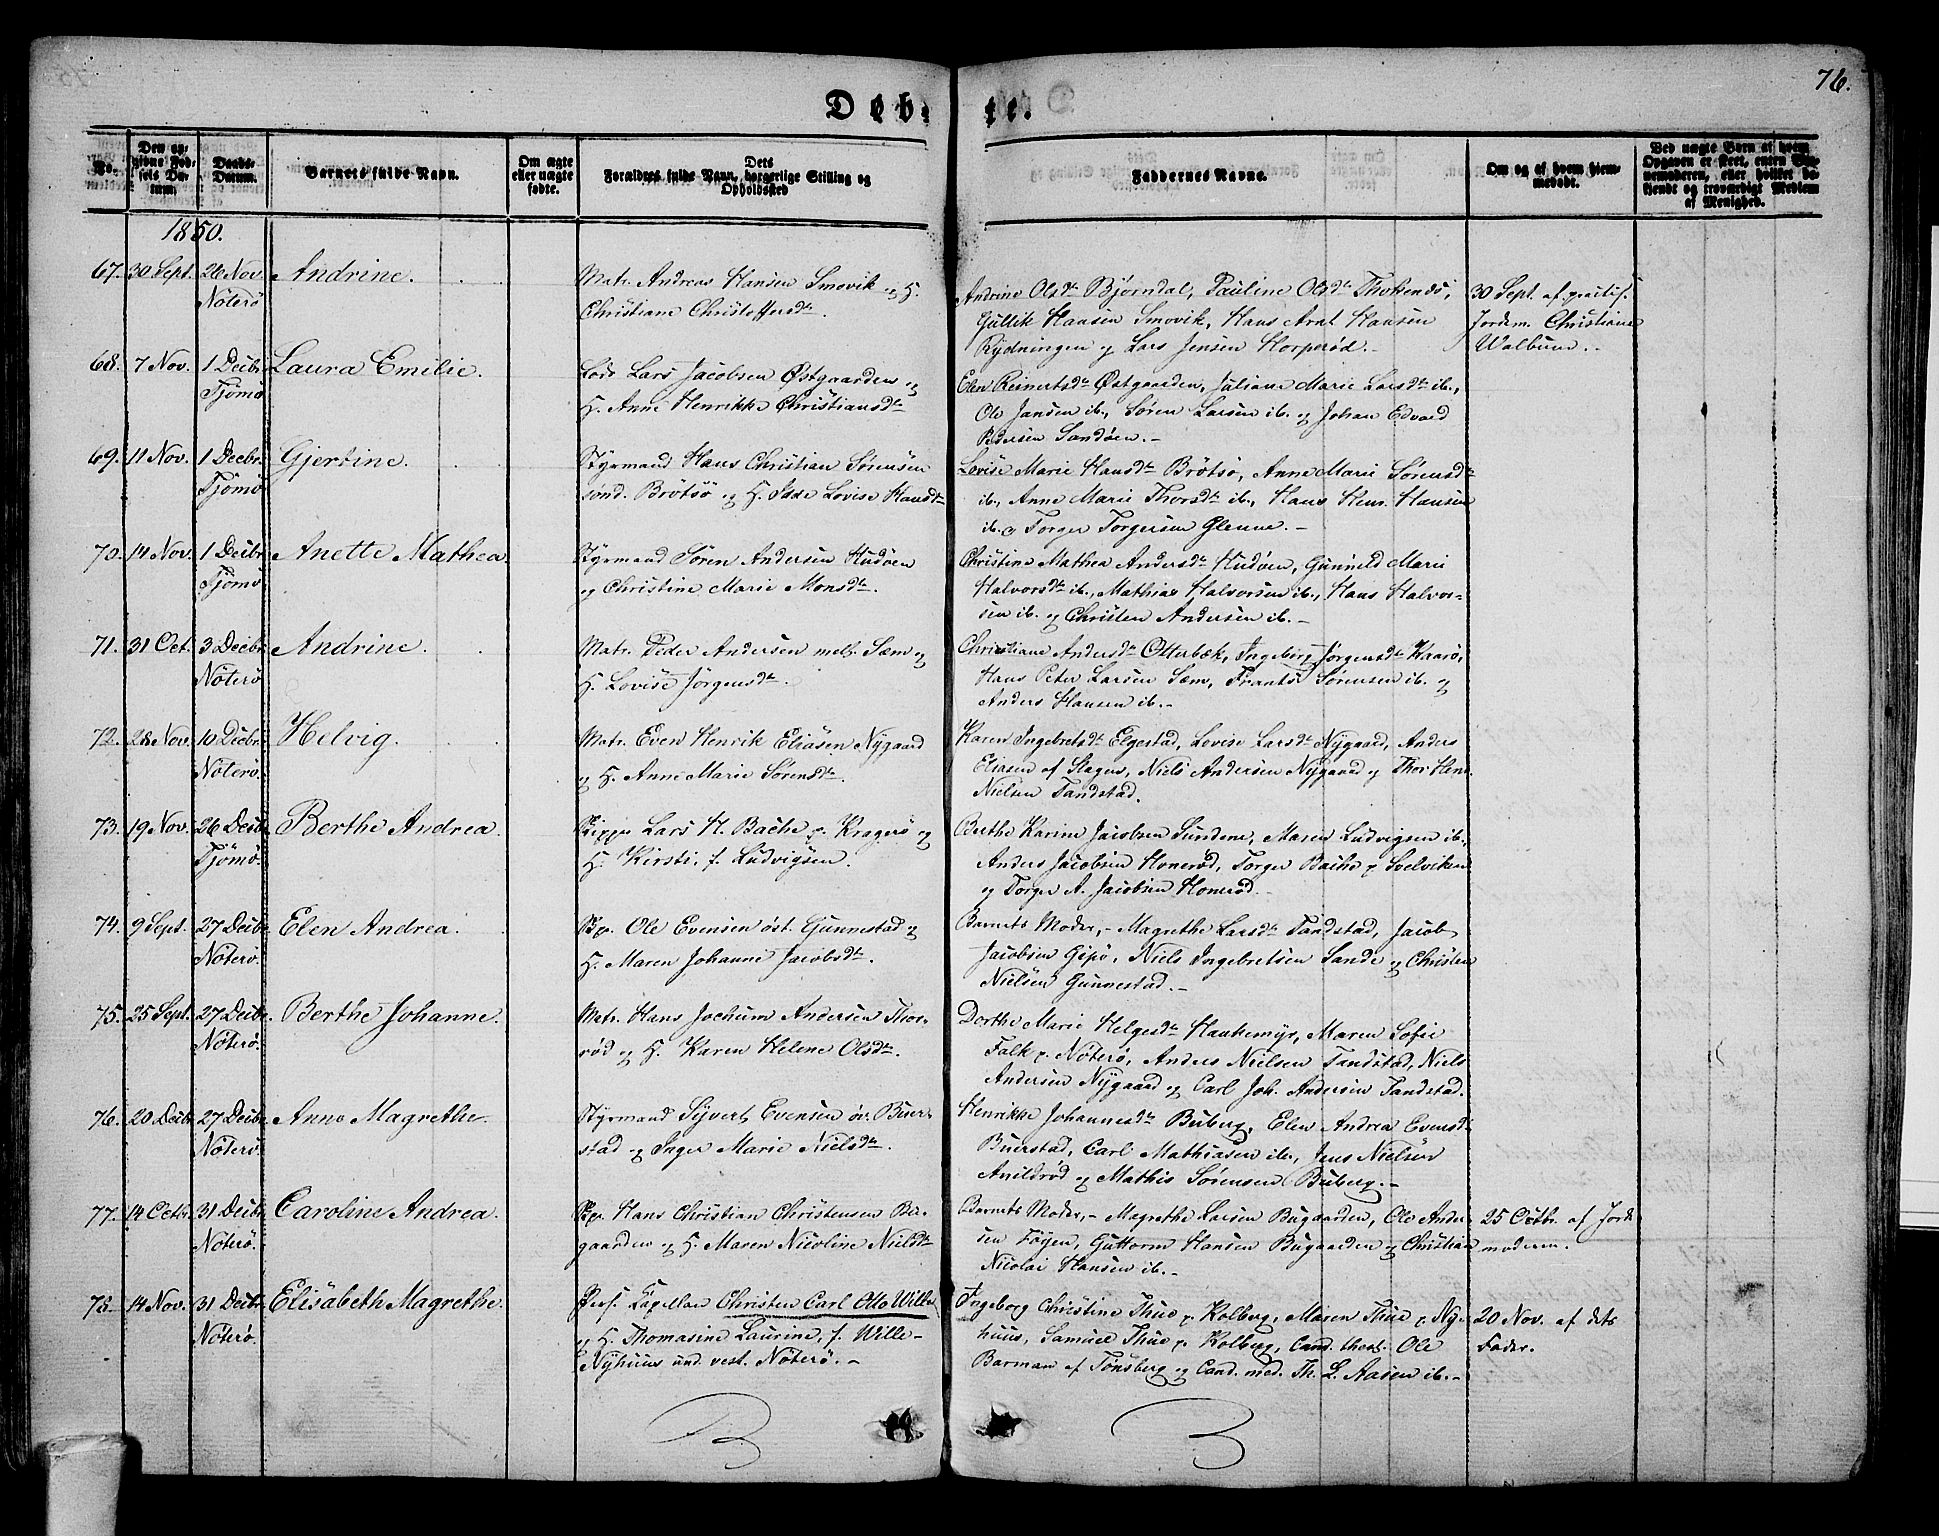 76.
Døbte.
No.
Den opgivne Fødsels Datum.
Daabs-Datum.
Barnets fulde Navn.
Om ægte eller uægte fødte.
Forældres fulde Navn, borgerlige Stilling og Opholdssted
Faddernes Navne.
Om og af hvem hjemmedøbt.
1850.
67. 30 Sept. 26 Nov. Nøterø Andrine.
Matr. Andreas Hansen Smovik og H.
Christiane Christoffersdtr.
Andrine Olsdtr Bjørndal, Pauline Olsdtr
Gullik Hansen Smovik, Hans Arnt Hansen
Rydningen og Lars Jensen Horperød.-
30 Sept. af
Jordem. Christiane
68. 7 Nov. 1 Decbr. Tjømø Laura Emilie.
Lods Lars Jacobsen Østgaarden og
H. Anne Henrikke Christiansdtr
Elen Reinertsdtr Østgaarden, Juliane Marie Larsdtr ib.,
Ole Jansen ib., Søren Larsen ib. og Johan Edvard
Pedersen Sandøen.-
69. 11 Nov. 1 Decbr. Tjømø Gjertine.
Styrmand Hans Christian Sørensen
sønd. Brøtsø og H. Lovise Hansdtr
Lovise Marie Hansdtr Brøtsø, Anne Marie Sørensdtr
ib., Anne Marie Thorsdtr ib., Hans Henr. Hansen
ib. og Torger Torgersen Glenne.-
70. 14 Nov. 1 Decbr. Tjømø Anette Mathea.
Styrmand Søren Andersen Hudøen
og Christine Marie Monsdtr.
Christine Mathea Andersdtr Hudøen, Gunnild Marie
Halvorsdtr ib., Mathias Halvorsen ib., Hans Halvor-
sen ib. og Christen Andersen ib.-
71. 31 Oct. 3 Decbr. Nøterø Andrine.
Matr. Peder Andersen mell. Sæm og
H. Lovise Jørgensdtr.
Christiane Andersdtr Otterbæk, Ingeborg Jørgensdtr Kaarø,
Hans Peter Larsen Sæm, Frants Sørensen ib. og
Anders Hansen ib.-
72. 28 Nov. 10 Decbr. Nøterø. Helvig.
Matr. Even Henrik Eliasen Nygaard
og H. Anne Marie Sørensdtr.
Karen Ingebretsdtr Elgestad, Lovise Larsdtr Nygaard, Anders
Eliasen af Slagen, Niels Andersen Nygaard og Thor Henr.
Nielsen Tandstad.
73. 19 Nov. 26 Decbr. Tjømø. Berthe Andrea.
Skipper Lars H. Bache p. Kragerø og
H. Kirsti, f. Ludvigsen.
Berthe Karine Jacobsen Sundene, Maren Ludvigsen ib.,
Anders Jacobsen Honerød, Torger Bache p. Svelviken
og Torger A. Jacobsen Honerød.
74. 9 Sept. 27 Decbr. Nøterø. Elen Andrea.
Sk. Ole Evensen øst. Gunnestad og
H. Maren Johanne Jacobsdtr.
Barnets Moder,- Magrethe Larsdtr Tandstad, Jacob
Jacobsen Gipø, Niels Ingebretsen Sande og Christen
Nielsen Gunnestad.-
75. 25 Sept. 27 Decbr. Nøterø. Berthe Johanne.
Matr. Hans Jochum Andersen Thor-
rød og H. Karen Helene Olsdtr.
Dorthe Marie Helgesdtr Haukemyr, Maren Sofie
Falk p. Nøterø, Anders Nielsen Tandstad, Niels
Andersen Nygaard og Carl Joh. Andersen Tandstad.
76. 20 Decbr. 27 Decbr. Nøterø. Anne Magrethe.
Styrmand Syvert Evensen øv. Buer-
stad og Inger Marie Nielsdtr.
Henrikke Johannesdtr Buberg, Elen Andrea Evensdtr
Buerstad, Carl Mathiasen ib., Jens Nielsen
Anildrød og Mathis Sørensen Buberg.-
77. 14 Octbr. 31 Decbr. Nøterø. Caroline Andrea.
Sk. Hans Christian Christensen Bu-
gaarden og H. Maren Nicoline Nielsdtr
Barnets Moder,- Magrethe Larsen Bugaarden, Ole Ander-
sen Føyen, Guttorm Hansen Bugaarden og Christian
Nicolai Hansen ib.-
25 Octbr. af Jord-
moderen.
78. 14 Nov. 31 Decbr. Nøterø. Elisabeth Magrethe.
Pers. Kapellan Christen Carl Otto Wille
og H. Thomasine Laurine, f. Wille-
Nyhuus und. vest. Nøterø.-
Ingeborg Christine Thue p. Kolberg, Maren Thue p. Ny-
huus, Samuel Thue p. Kolberg, Cand. theol. Ole
Barman af Tønsberg og Cand. med. Th. L. Aasen ib.-
20 Nov. af dets
Fader.